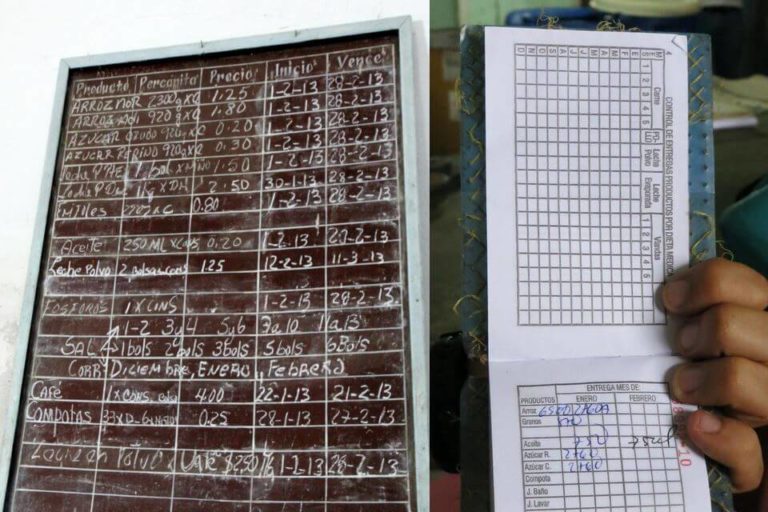 Producto Percapita Precio Inicio Vence
ARROZ NOR 2300g 1.25 1-2-13 28-2-13
ARROZ ADI 920g 1.80 1-2-13 28-2-13
AZUCAR 920g 0.20 1-2-13 28-2-13
AZUCAR REFINO 920g 0.30 1-2-13 28-2-13
1.50 1-2-13 28-2-13
2.50 30-1-13 28-2-13
0.80 1-2-13 28-2-13
Aceite 250 ML x CONS 0.20 1-2-13 27-2-13
Leche Polvo 2 Bolsa 125 12-2-13 11-3-13
FOSFOROS 1 x CONS 1-2-13 28-2-13
1-2 3y4 5y6 7a10 11a13
SAL 1bols 2bols 3bols 5bols 6Bols
CORR: DICIEMBRE, ENERO, Febrero
Café 1 x CONS 4.00 22-1-13 21-2-13
COMPOTAS 0.25 28-1-13 27-2-13
Polvo 1-2-13 28-2-13
4
CONTROL DE ENTREGAS PRODUCTOS POR DIETA MEDICA
MES Carne Leche Polvo Leche Evaporada Viandas
1 2 3 4 5 1 2 3 4 5 6
E
F
M
A
M
J
J
A
S
O
N
D
PRODUCTOS ENTREGA MES DE:
ENERO FEBRERO
Arroz
Granos
Aceite 750
Azúcar R. 2760
Azúcar C. 2760
Compota
J. Baño
J. Lavar